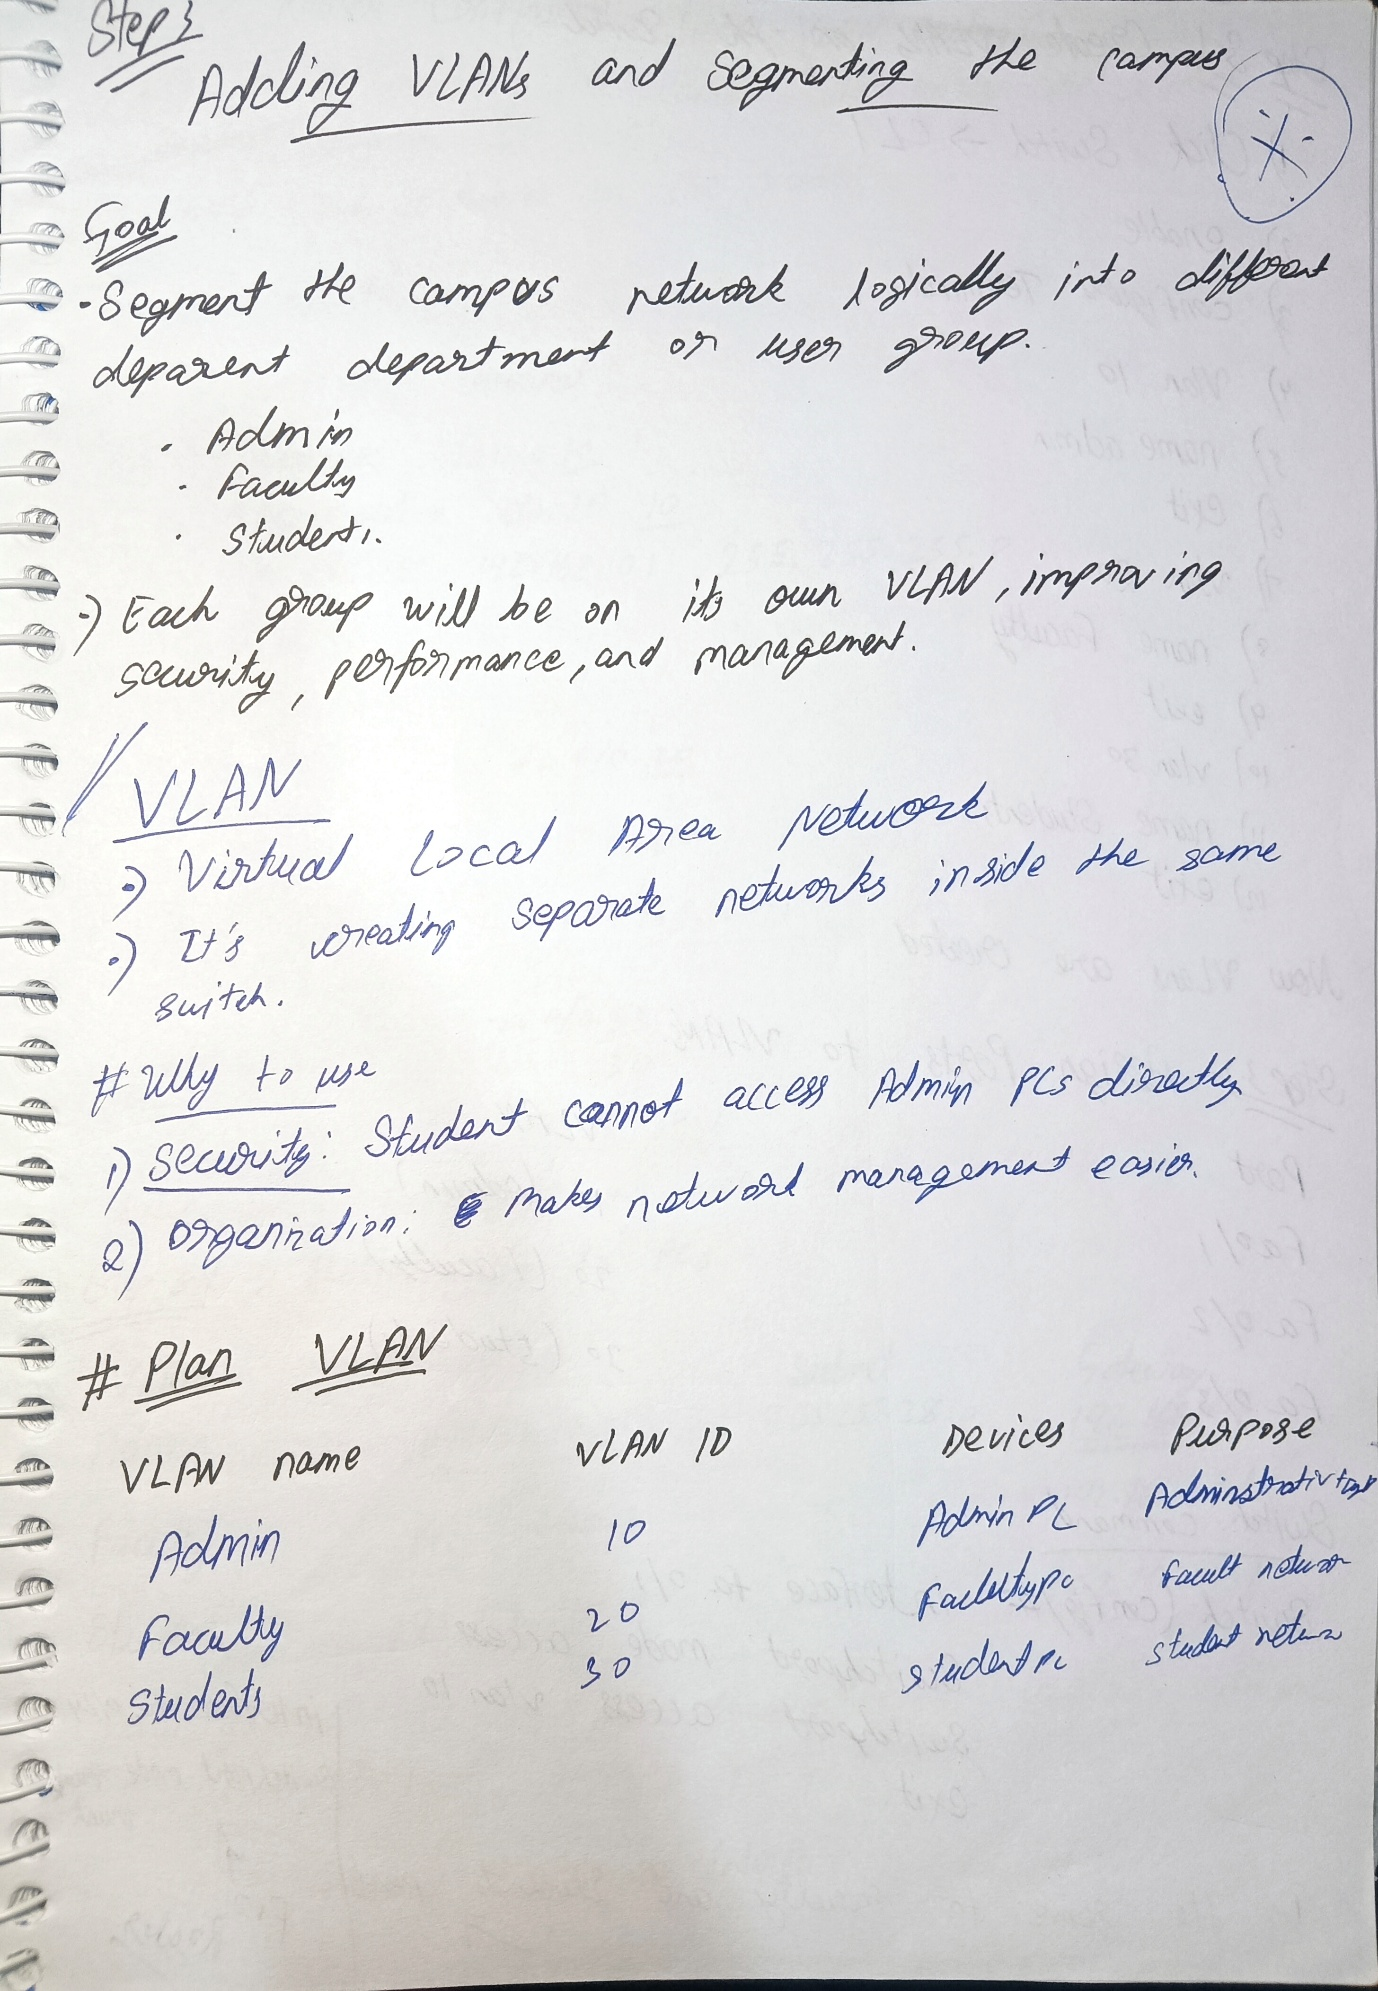 Step 3
Adding VLANs and Segmenting the campus
Goal
- Segment the campus network logically into different
deparent department or user group.
. Admin
. Faculty
. Students.
:) Each group will be on its own VLAN, improving
security, performance, and management.
VLAN
:) Virtual Local Area Network
:) It's creating separate networks inside the same
switch.
# Why to use
1) Security: Student cannot access Admin PCs directly
2) Organization: Makes network management easier.
# Plan VLAN
VLAN name VLAN ID Devices Purpose
Admin 10 Admin PC Adminstrativ
Faculty 20 Facultypc Facult networ
Students 30 student PC student networ